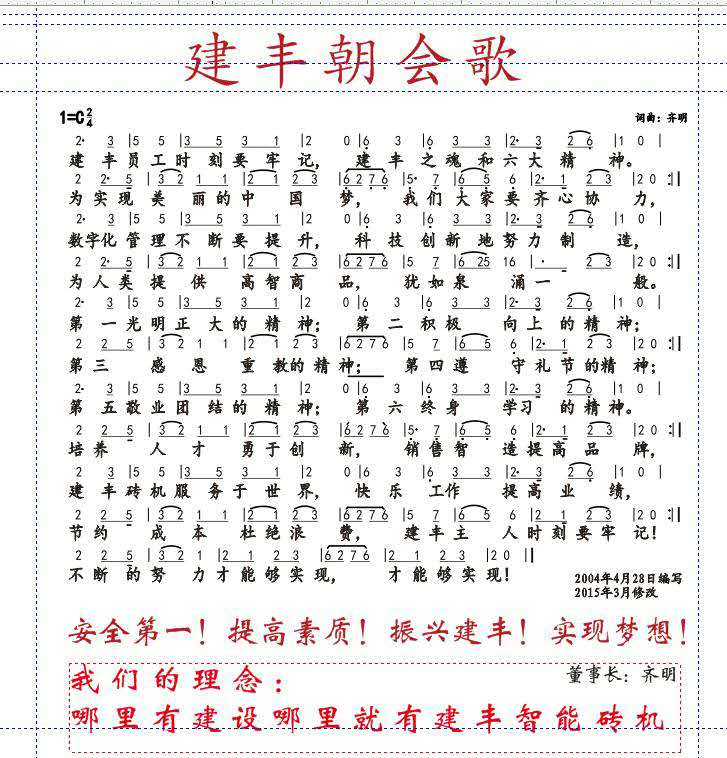 建丰朝会歌
1=C 2/4
词曲：齐明
2· 3 |5 5 |3 5 3 1 |2 0|6 3 |6 3 3 |2· 3 2 6 |1 0 |
建丰员工时刻要牢记，建丰之魂和六大精神。
2 2 5 |3 2 1 1 |2 1 2 3 |6 2 7 6 |5· 7 |6 5 6 |2· 1 2 3 |2 0 :||
为实现美丽的中国梦，我们大家要齐心协力，
2· 3 |5 5 |3 5 3 1 |2 0|6 3 |6 3 3 |2· 3 2 6 |1 0 |
数字化管理不断要提升，科技创新地努力制造，
2 2· 5 |3 2 1 1 |2 1 2 3 |6 2 7 6 |5 7 |6 25 |16 |· 2 3 |2 0 :||
为人类提供高智商品，犹如泉涌一般。
2· 3 |5 5 |3 5 3 1 |2 0|6 3 |6 3 3 |2· 3 2 6 |1 0 |
第一光明正大的精神；第二积极向上的精神；
2 2 5 |3 2 1 1 |2 1 2 3 |6 2 7 6 |5 7 |6 5 6 |2· 1 2 3 |2 0 :||
第三感恩重教的精神；第四遵守礼节的精神；
2· 3 |5 5 |3 5 3 1 |2 0|6 3 |6 3 3 |2· 3 2 6 |1 0 |
第五敬业团结的精神；第六终身学习的精神。
2 2 5 |3 2 1 1 |2 1 2 3 |6 2 7 6 |5· 7 |6 5 6 |2· 1 2 3 |2 0 :||
培养人才勇于创新，销售智造提高品牌，
2 3 |5 5 |3 5 3 1 |2 0|6 3 |6 3 3 |2· 3 2 6 |1 0 |
建丰砖机服务于世界，快乐工作提高业绩，
2 2 5 |3 2 1 1 |2 1 2 3 |6 2 7 6 |5 7 |6 5 6 |2 1 2 3 |2 0 :||
节约成本杜绝浪费，建丰主人时刻要牢记！
2 2 5 |3 2 1 |2 1 2 3 |6 2 7 6 |2 1 2 3 |2 0 ||
不断的努力才能够实现，才能够实现！
2004年4月28日编写
2015年3月修改
安全第一！提高素质！振兴建丰！实现梦想！
董事长：齐明
我们的理念：
哪里有建设哪里就有建丰智能砖机